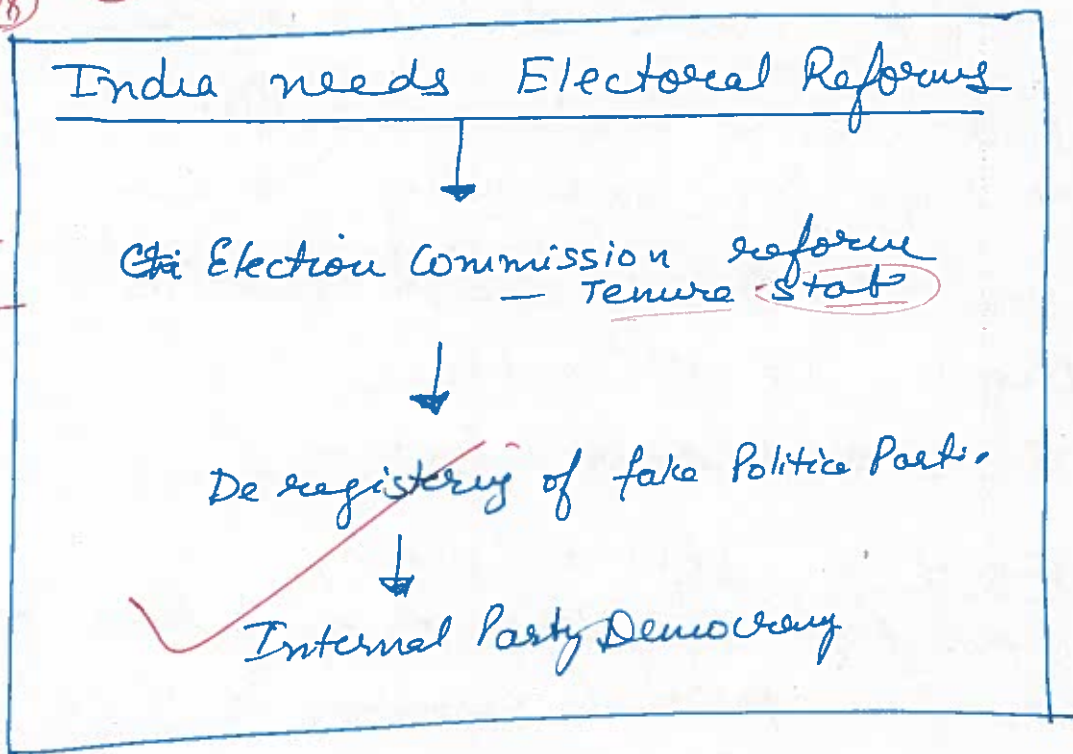 India needs Electoral Reforms
Election Commission reform
— Tenure stab
De registering of fake Politica Parti.
Internal Party Democracy